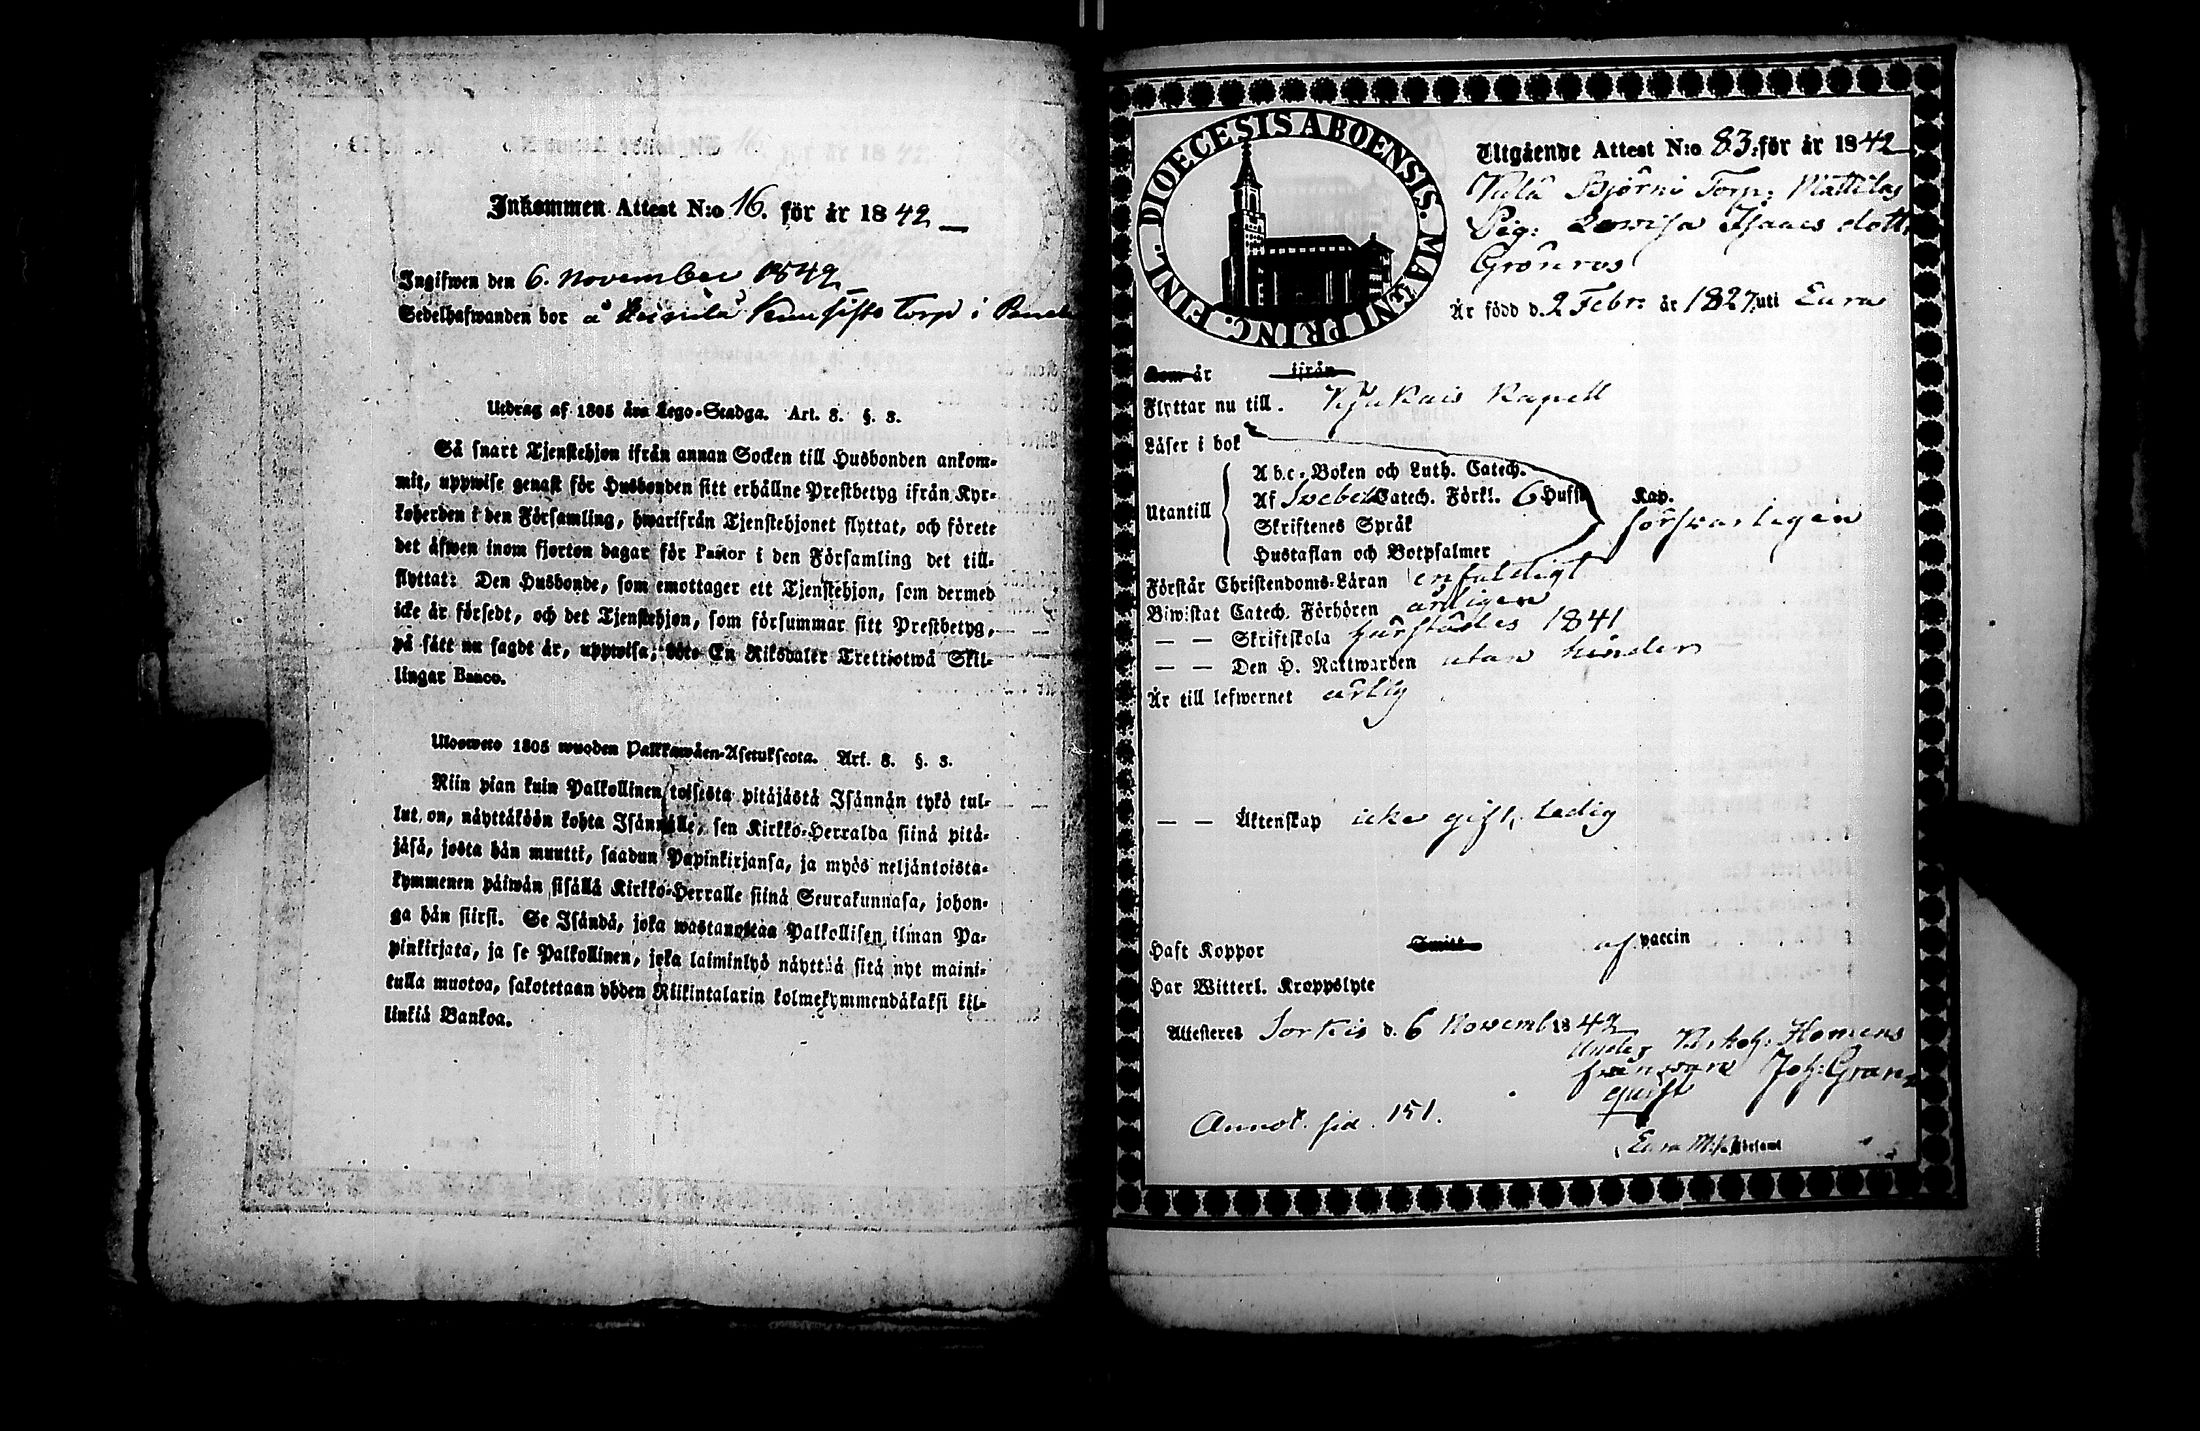 Inkommen Attest N:o 16. för år 1842
Ingifwen den 6. November 1842
Sedelhafwanden bor å Torp i
Utdrag af 1805 års Lego-Stadga. Art. 8. §. 3.
Så snart Tjenstehjon ifrån annan Socken till Husbonden ankom-
mit, uppwise genast för Husbonden sitt erhållne Prestbetyg ifrån Kyr-
koherden i den Församling, hwarifrån Tjenstehjonet flyttat, och förete
det äfwen inom fjorton dagar för Pastor i den Församling det till-
flyttat: Den Husbonde, som emottager ett Tjenstehjon, som dermed
icke är försedt, och det Tjenstehjon, som försummar sitt Prestbetyg,
på sätt nu sagdt är, uppwisa, böte En Riksdaler Trettiotwå Skil-
lingar Banco.
Uloswetо 1805 wuoden Palkkawäen-Asetuksesta. Art. 8. §. 3.
Niin pian kuin Palkollinen toisesta pitäjästä Isännän tykö tul-
lut on, näyttäköön kohta Isännälle, sen Kirkko-Herralda siinä pitä-
jäsä, josta hän muutti, saadun Papinkirjansa, ja myös neljäntoista-
kymmenen päiwän sisällä Kirkko-Herralle siinä Seurakunnasa, johon-
ga hän siirsi. Se Isändä, joka wastanottaa Palkollisen ilman Pa-
pinkirjata, ja se Palkollinen, joka laiminlyö näyttää sitä nyt maini-
tulla muotoa, sakotetaan yhden Riikintalarin kolmekymmendäkaksi kil-
linkiä Bankoa.
DIOECESIS ABOENSIS. MAGNI PRINC. FINL.
Utgående Attest N:o 83. för år 1842
Björni Torp: Mattilas
Pig: Lowisa Isaacs dott.
Grönroos
Är född d. 2 Febr: år 1827 uti Eura
Kom år ifrån
Flyttar nu till. Kjukais Kapell
Läser i bok
Abc-Boken och Luth. Catech.
Utantill Af Svebelii Catech. Förkl. 6 Hufst. Kap.
försvarligen
Skriftenes Språk
Hustaflan och Botpsalmer
Förstår Christendoms-Läran enfaldigt
Biwistat Catech. Förhören årligen
— — Skriftskola 1841
— — Den H. Nattwarden utan hinder
Är till lefwernet ärlig
— — Äktenskap icke gift, ledig
Haft Koppor Smitt af vaccin
Har Witterl. Kroppslyte
Attesteras Sorkis d. 6 Novemb. 1842
under Kyrkoh: Homens
frånvaro Joh: Gran-
quist
Annot. sid. 151.
Eura